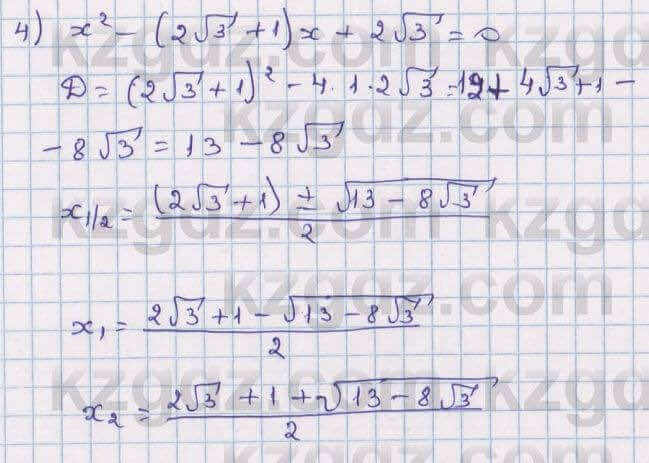 4) x² - (2√3 + 1)x + 2√3 = 0
D = (2√3 + 1)² - 4 · 1 · 2√3 = 12 + 4√3 + 1 -
- 8√3 = 13 - 8√3
x1/2 = (2√3 + 1) ± √13 - 8√3 / 2
x₁ = 2√3 + 1 - √13 - 8√3 / 2
x₂ = 2√3 + 1 + √13 - 8√3 / 2
kzgdz.com